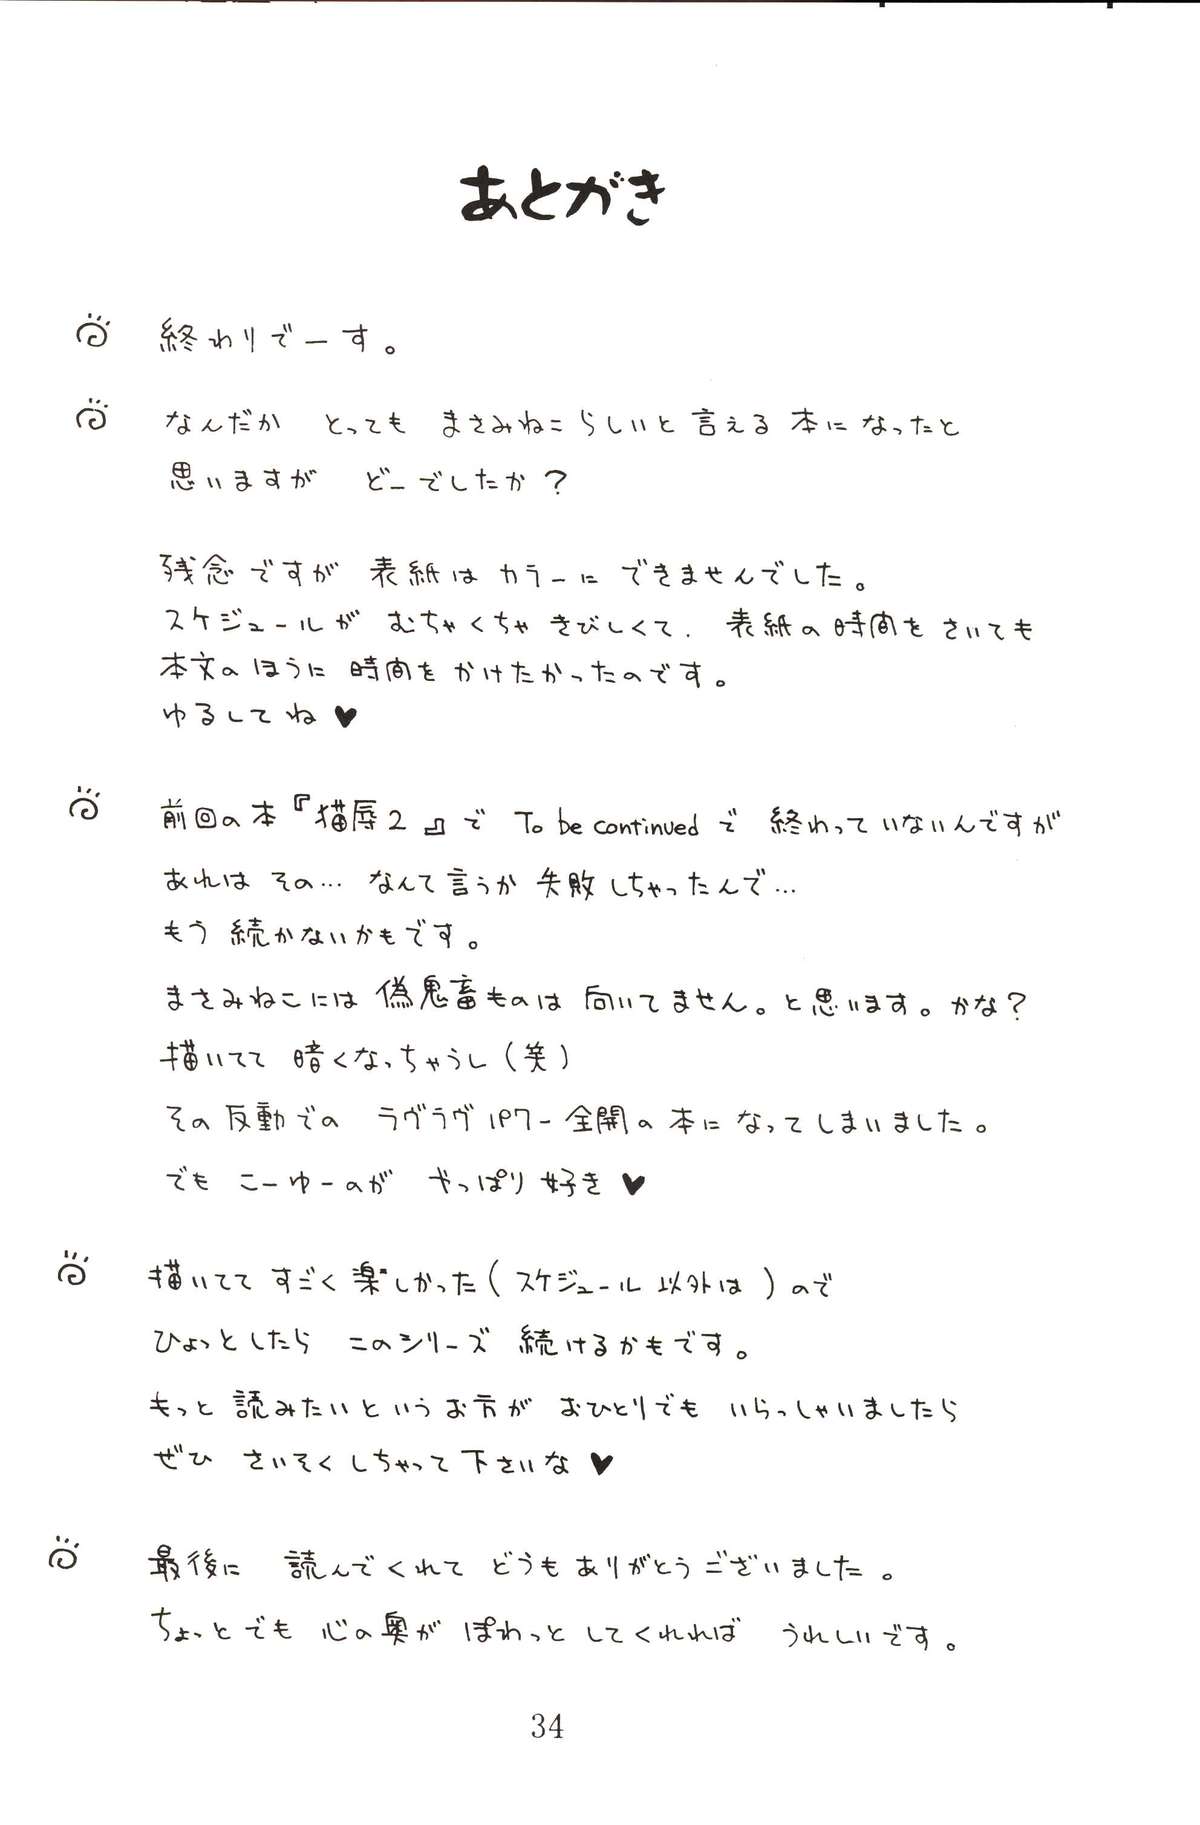 あとがき
終わりでーす。
なんだか とっても まさみねこらしいと言える本になったと
思いますが どーでしたか？
残念ですが 表紙は カラーに できませんでした。
スケジュールが むちゃくちゃ きびしくて. 表紙の時間を さいても
本文のほうに 時間を かけたかったのです。
ゆるしてね♥
前回の本『猫辱2』で To be continued で 終わっていないんですが
あれは その… なんて言うか 失敗しちゃったんで…
もう 続かないかもです。
まさみねこには 偽鬼畜ものは 向いてません。と思います。かな？
描いてて 暗くなっちゃうし（笑）
その反動での ラヴラヴパワー全開の本になってしまいました。
でも こーゆーのが やっぱり 好き♥
描いてて すごく楽しかった（スケジュール以外は）ので
ひょっとしたら このシリーズ 続けるかもです。
もっと 読みたいというお方が おひとりでも いらっしゃいましたら
ぜひ さいそくしちゃって下さいな♥
最後に 読んでくれて どうもありがとうございました。
ちょっとでも 心の奥が ぽわっと してくれれば うれしいです。
34